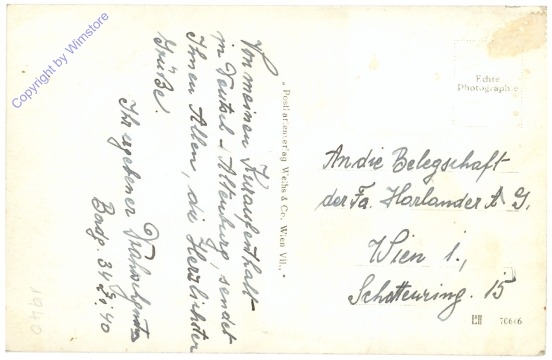 Copyright by Wimstore
Von meinen Kuraufenthalt
in Deutsch-Altenburg, sendet
Ihnen Allen, die Herzlichsten
Grüße.
Ihr ergebener
40
1940
"Postkartenverlag Weihs & Co. Wien VII."
Echte
Photographie
An die Belegschaft
der Fa. Harlander A G.
Wien 1.,
Schottenring. 15
70646